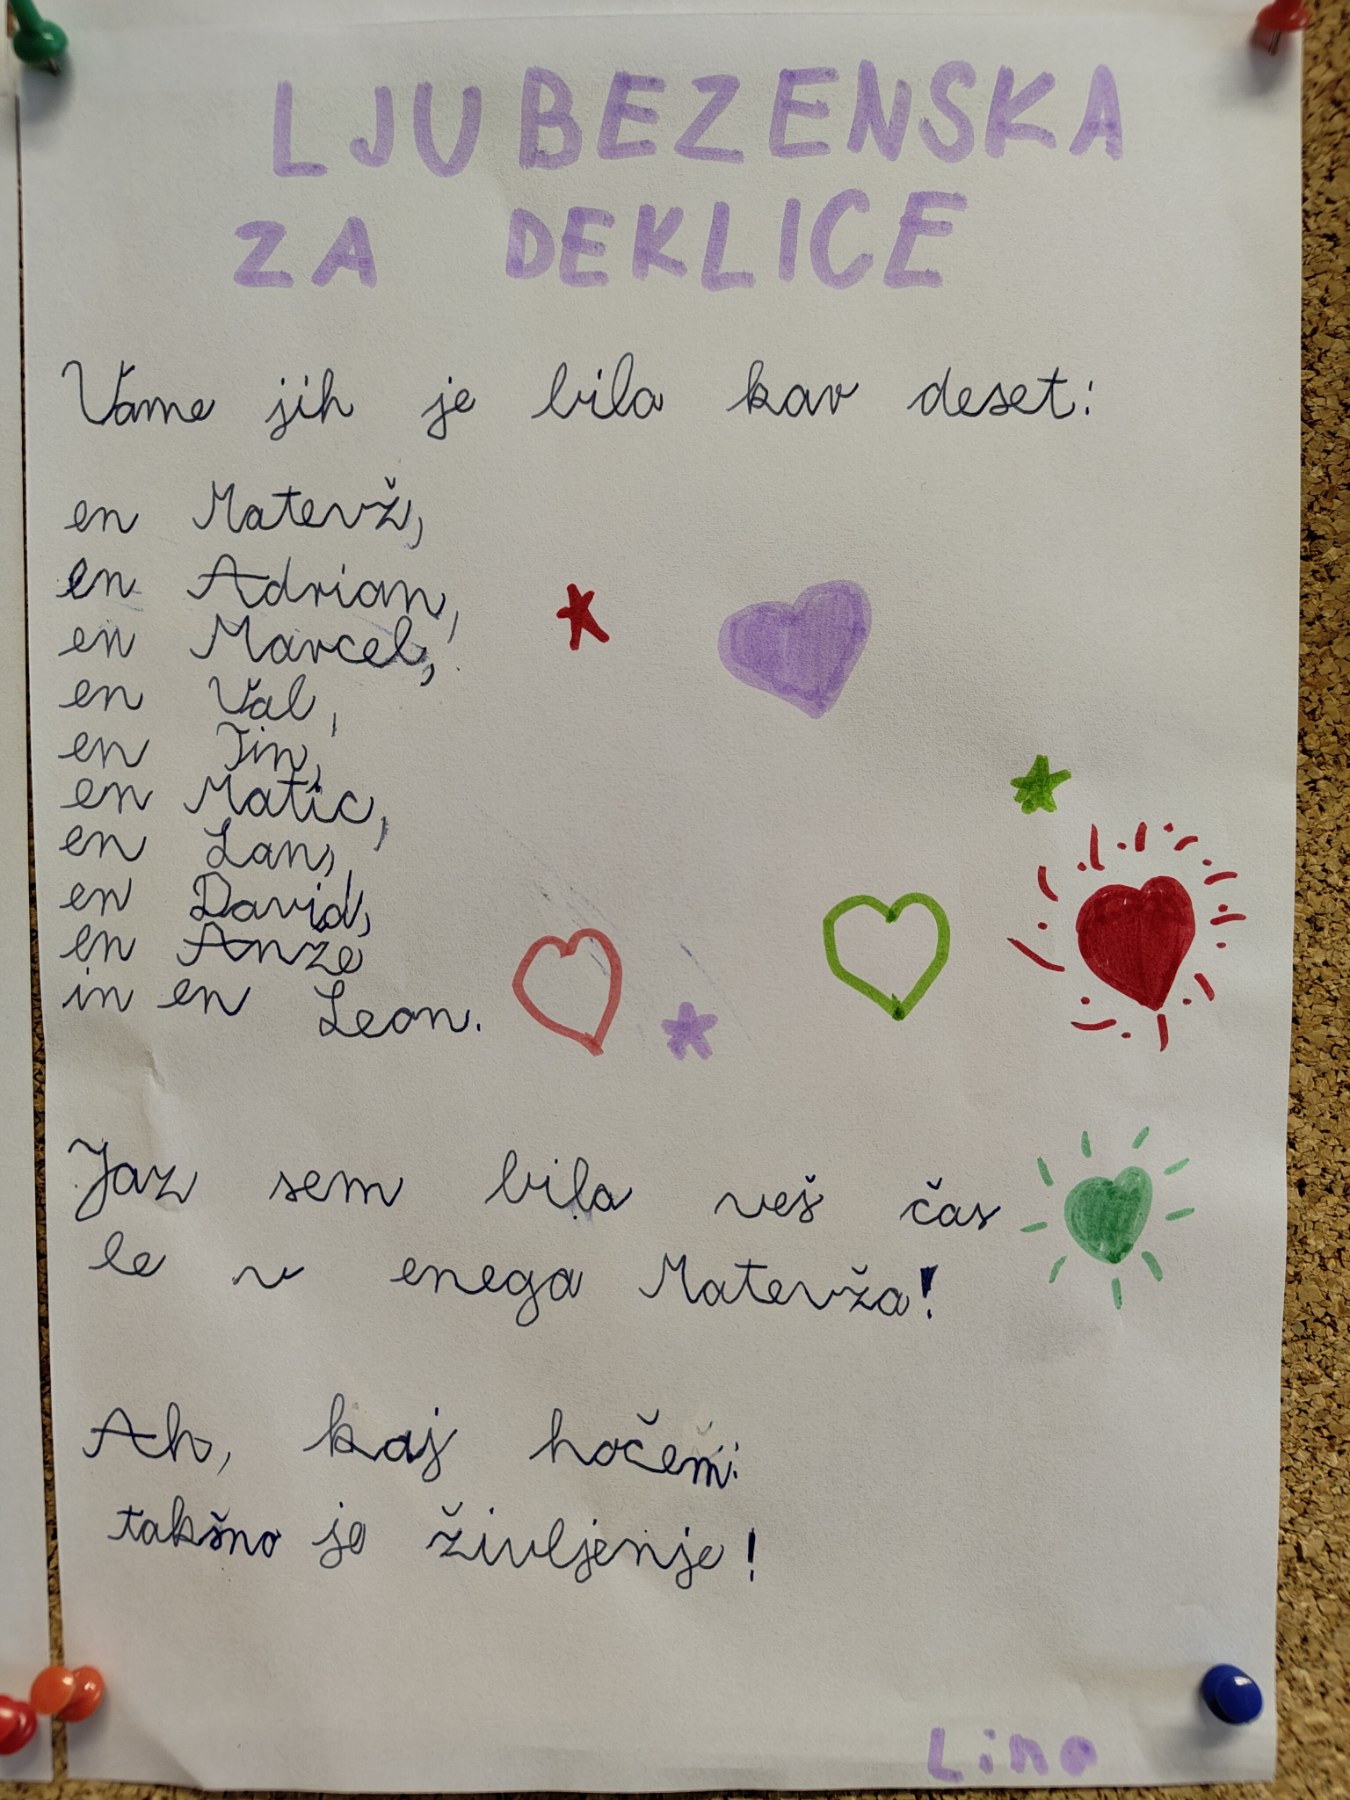 LJUBEZENSKA
ZA DEKLICE
Vame jih je bila kar deset:
en Matevž,
en Adrian,
en Marcel,
en Val,
en Tin,
en Matic,
en Lan,
en David,
en Anže
in en Leon.
Jaz sem bila veš čas
le v enega Matevža!
Ah, kaj hočem:
takšno je življenje!
Lina